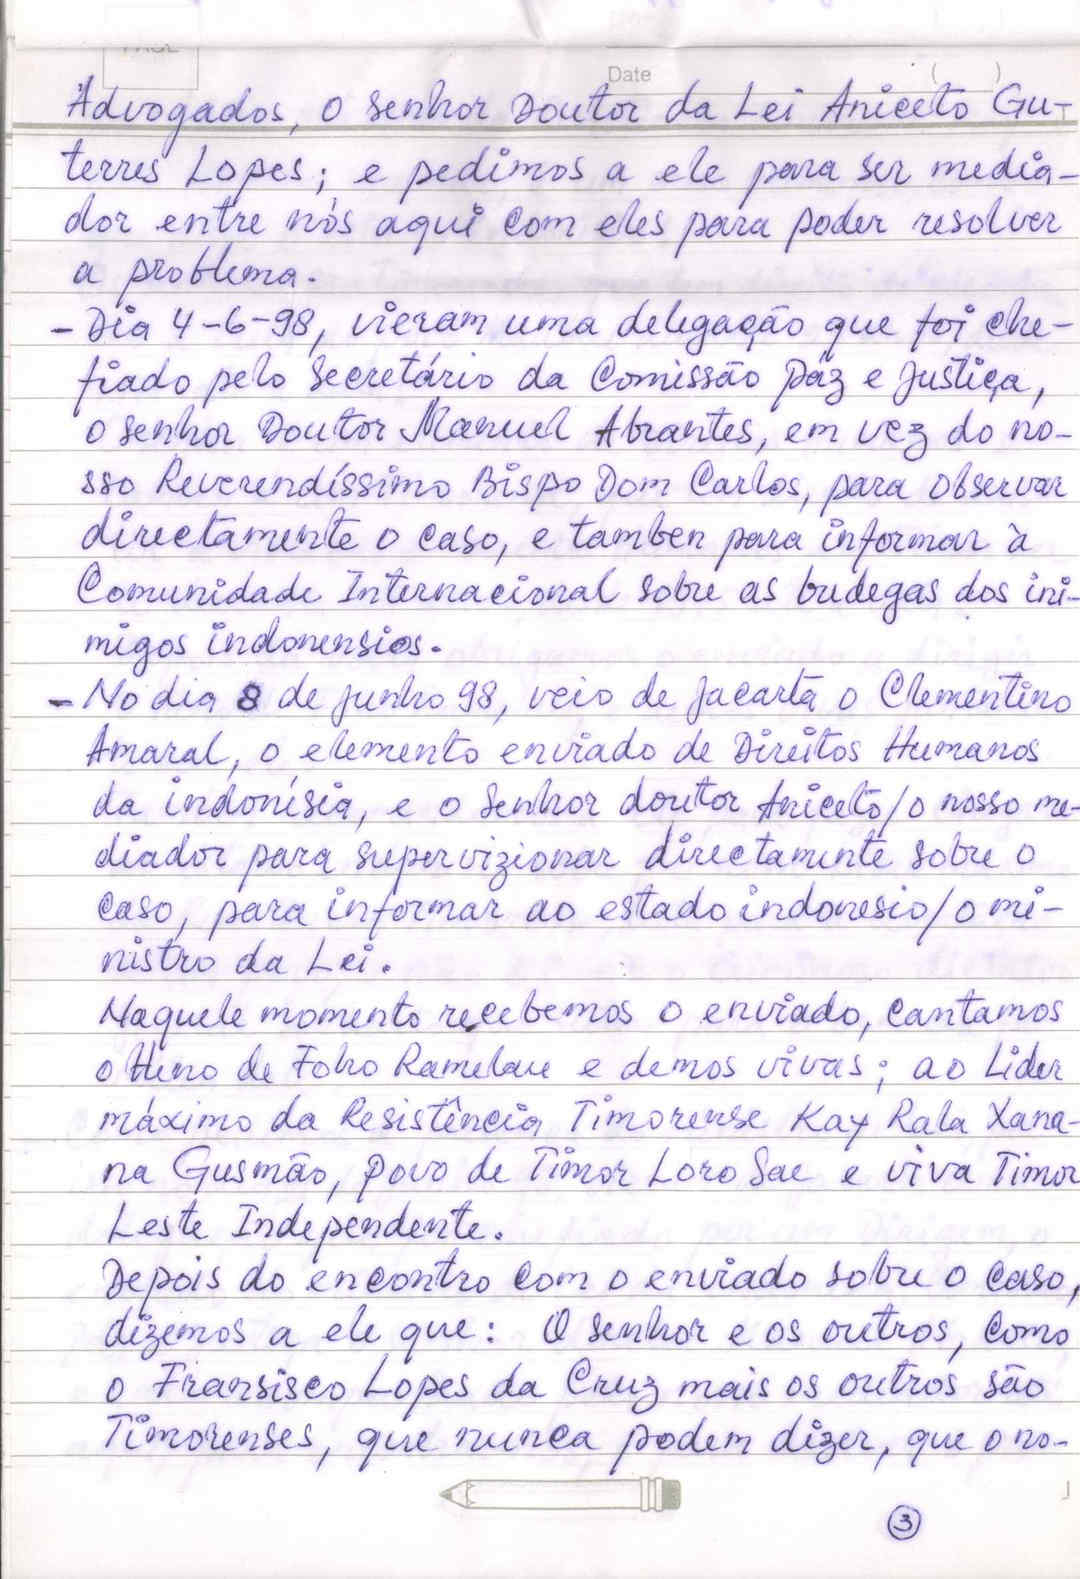 Date ( )
Advogados, o senhor Doutor da Lei Aniceto Gu-
terres Lopes; e pedimos a ele para ser media-
dor entre nós aqui com eles para poder resolver
a problema.
- Dia 4-6-98, vieram uma delegação que foi che-
fiado pelo Secretário da Comissão Páz e Justiça,
o senhor Doutor Manuel Abrantes, em vez do no-
sso Reverendíssimo Bispo Dom Carlos, para observar
directamente o caso, e tamben para informar à
Comunidade Internacional sobre as budegas dos ini-
migos indonensios.
- No dia 8 de Junho 98, veio de Jacarta o Clementino
Amaral, o elemento enviado de Direitos Humanos
da indonísia, e o Senhor doutor Aniceto/o nosso me-
diador para supervizionar directamente sobre o
caso, para informar ao estado indonesio/o mi-
nistro da Lei.
Naquele momento recebemos o enviado, cantamos
o Hino de Foho Ramelau e demos vivas; ao Lider
máximo da Resistência Timorense Kay Rala Xana-
na Gusmão, povo de Timor Loro Sae e viva Timor
Leste Independente.
Depois do encontro com o enviado sobre o caso,
dizemos a ele que: O senhor e os outros, como
o Fransisco Lopes da Cruz mais os outros são
Timorenses, que nunca podem dizer, que o no-
3